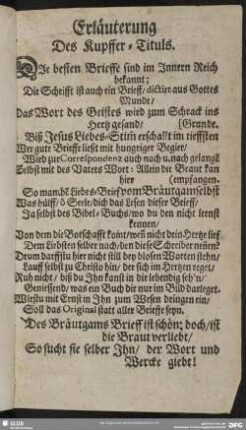 Erläuterung
Des Kupffer-Tituls.
DIe besten Brieffe sind im Innern Reich
bekannt;
Die Schrifft ist auch ein Brieff/ dictirt aus Gottes
Munde/
das Wort des Geistes wird zum Schrack ins
Hertz gesand/ (Grunde.
Biß Jesus Liebes-Stim̃ erschallt im tieffsten
Wer gute Brieffe liest mit hungriger Begier/
Wird zur Correspondenz auch noch u. nach gelangẽ
Selbst mit des Vaters Wort: Allein die Braut kan
hier (empfangen.
So manchẽ Liebes-Brief vom Bräutgam selbst
Was hülff/ ô Seele/ dich das Lesen dieser Brieff/
Ja selbst des Bibel-Buchs/ wo du den nicht lernst
kennen/
Von dem die Botschafft komt/ weñ nicht dein Hertz lief
Dem Liebsten selber nach/ den diese Schreiber neñen?
Drum darffstu hier nicht still bey blosen Worten stehn/
Lauff selbst zu Christo hin/ der sich im Hertzen reget/
Ruh nicht/ biß du Ihn kanst in dir lebendig seh'n/
Geniessend/ was ein Buch dir nur im Bild darleget.
Wirstu mit Ernst in Ihn zum Wesen dringen ein/
Soll das Original statt aller Brieffe seyn.
Des Bräutgams Brieff ist schön; doch/ ist
die Braut verliebt/
So sucht sie selber Ihn/ der Wort und
Wercke giebt!
SLUB
DFG